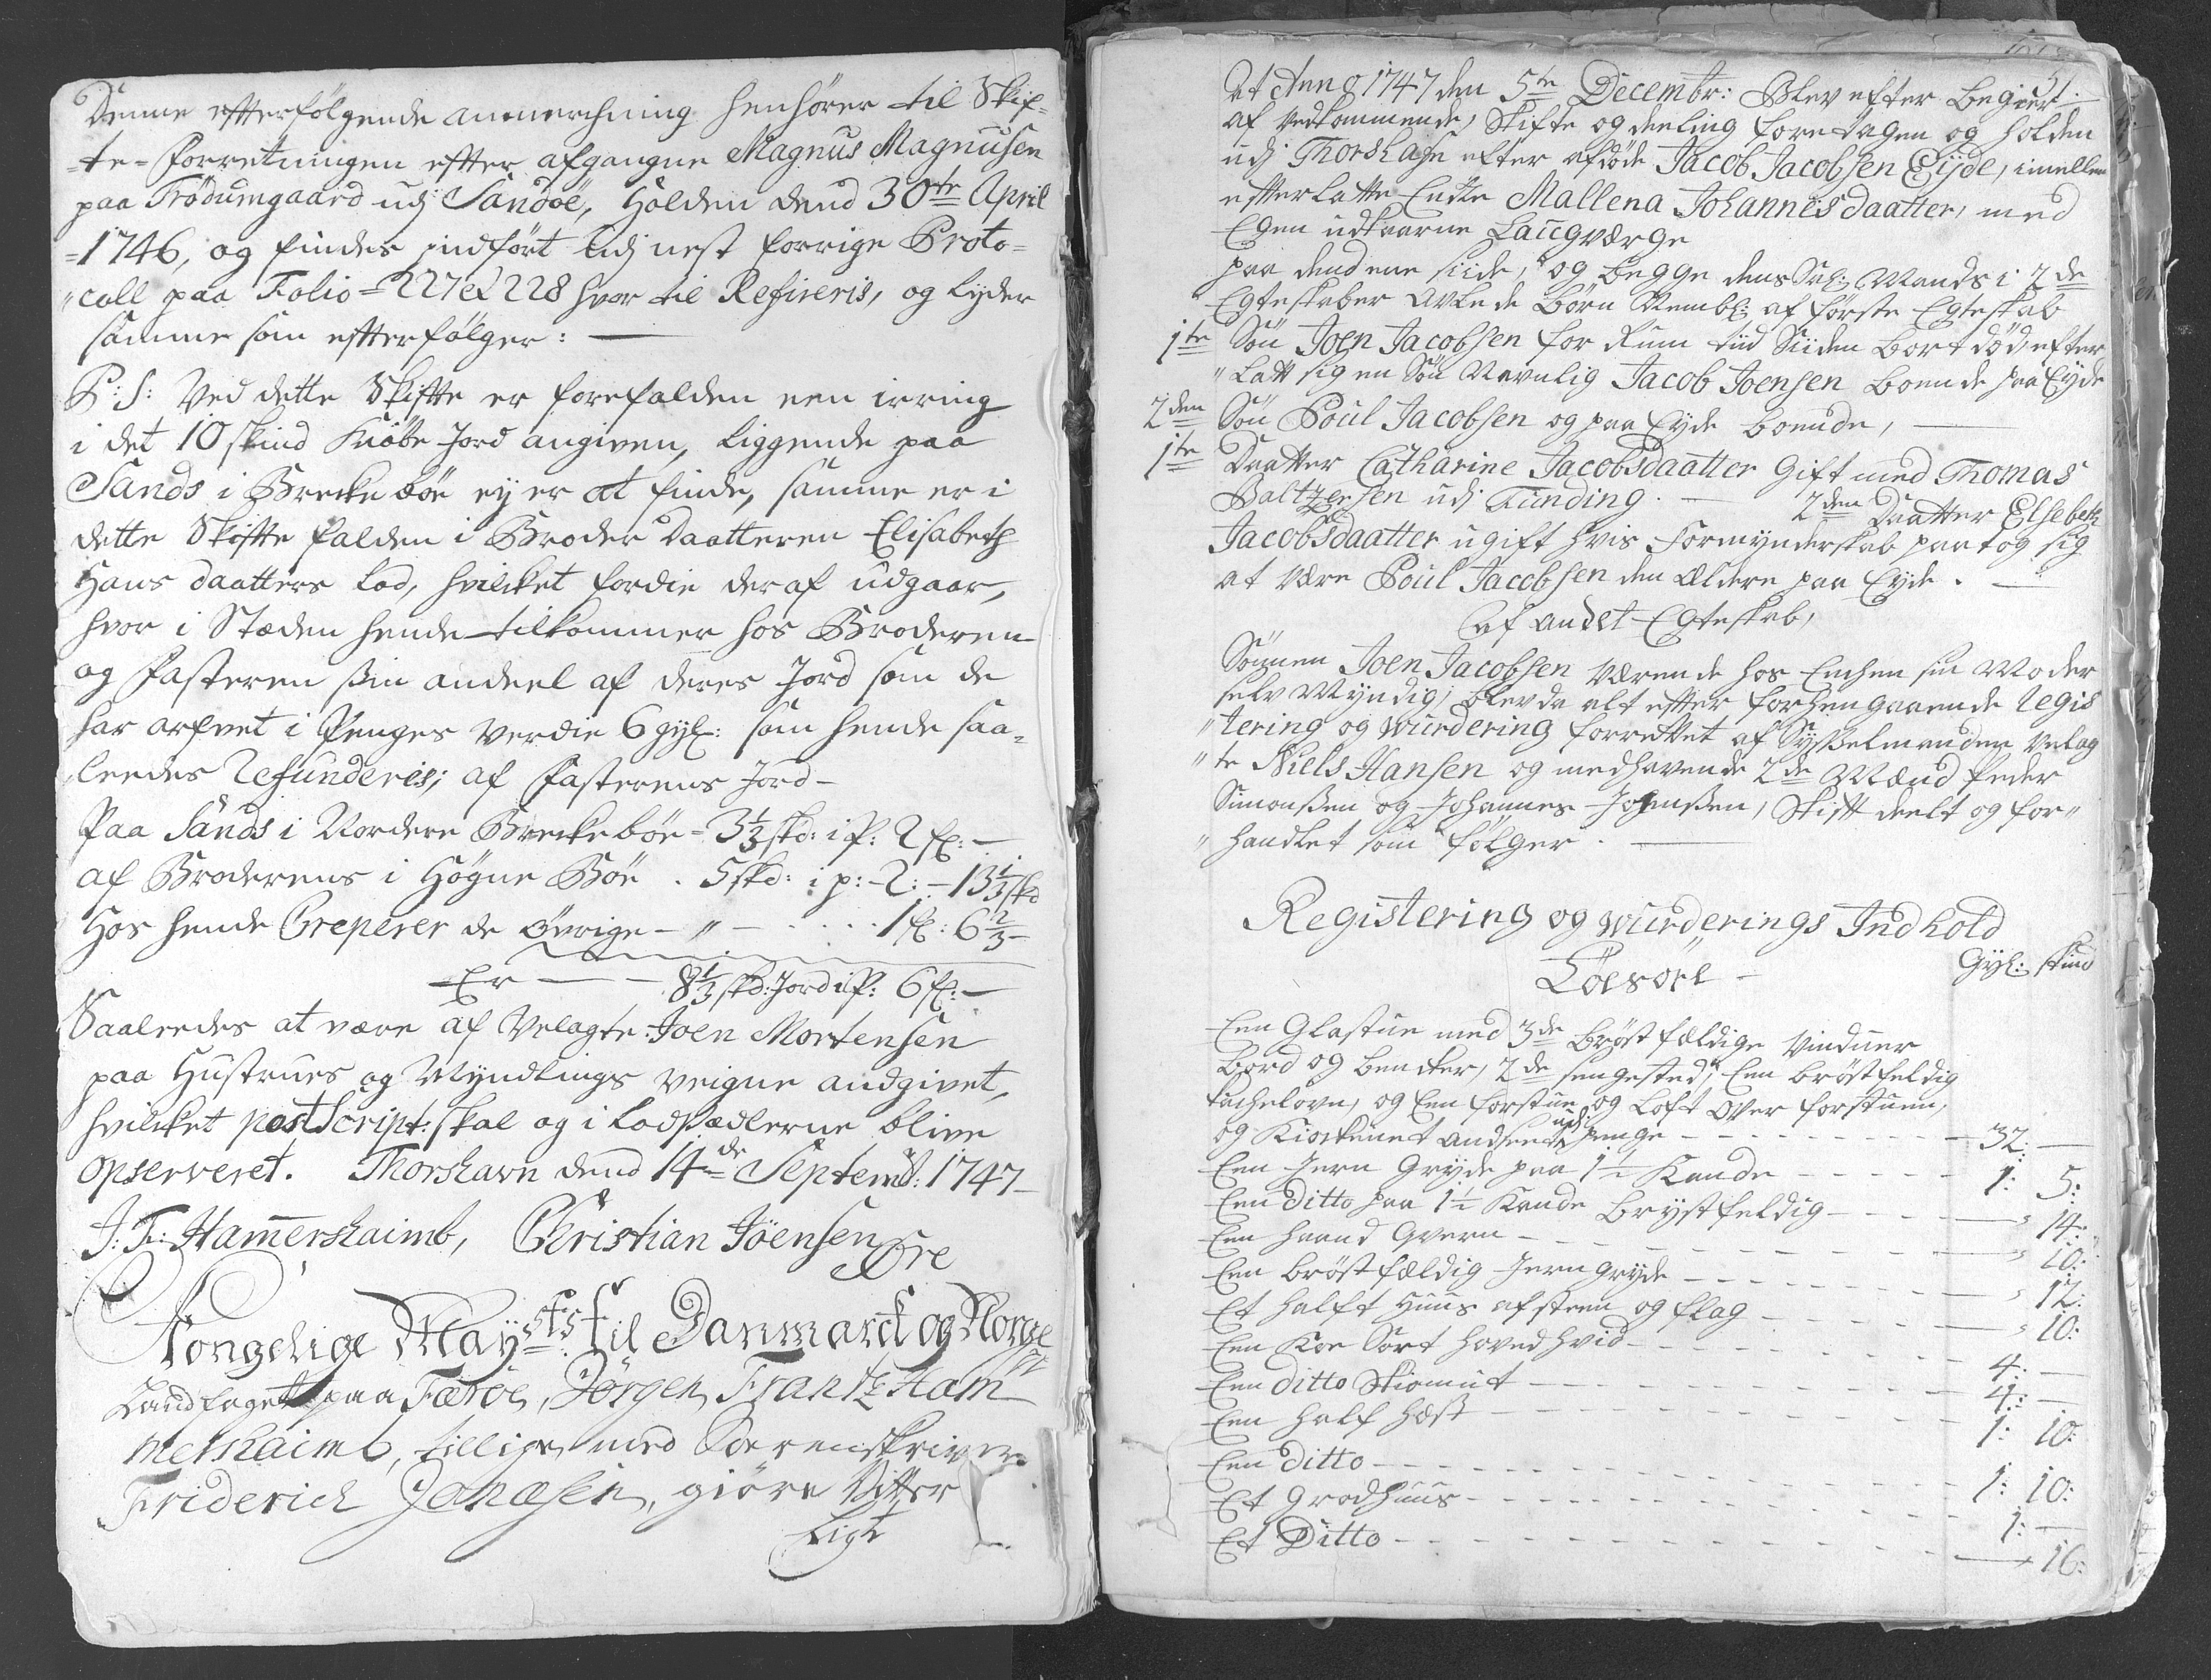 Denne efterfølgende anmerchning henhörer til Skif=
=te=Forretningen efter afgangne Magnus Magnusen
paa Trödumgaard udj Sandöe, Holden dend 30te April
=1746, og findes indfört udj nest forrige Proto=
"coll paa Folio=227 et 228 hvor til Refireris, og lyder
samme som efterfölger:
P:S: Ved dette Skifte er forefalden een irring
i det 10 skind Kiöbe Jord angiven, liggende paa
Sands i Brecke böe ey er at finde, samme er i
dette Skifte falden i Broder Daatteren Elisabeth
Hans daatters Lod, hvilcket fordie deraf udgaar,
hvor i Stæden hende tilkommer hos Broderen
og Fasteren sin andeel af deres Jord som de
har arfvet i Penges Verdie 6 gyl: som hende saa=
"leedes Refunderis; af Fasterens Jord-
Paa Sands i Nordere Breckeböe = 3 1/3 skd: i P: 2 gl:-
af Broderens i Högne Böe . 5 skd: i p:-2:-13 1/3 skd
Hos hende Creperer de övrige - " - . . . . 1 gl: 6 2/3 -
Er - 8 1/3 skd: Jord i P: 6 gl:-
Saaledes at være af Velagte Joen Mortensen
paa Hustrues og Myndlings veigne andgivet,
hvilcket post Script: skal og i Lodsædlerne blive
opserveret. Thorshavn dend 14de Septemb: 1747-
J: F: Hamershaimb, Christian Jöensen
Öre
Kongelige Mayests til Danmarck og Norge
Landfoget paa Færöe, Jörgen Frantz Ham=
mershaimb, tillige med Sorenskriver
Friderich Janæsen, giöre Vitter
Ligt
51.
At Anno 1747 den 5te Decembr: Blev efter begier
af vedkommende, Skifte og deeling foretagen og holden
udj Thorshafn efter afdöde Jacob Jacobsen Eijde, imellem
efterlatte Encke Mallena Johannesdaatter, med
Egen udkaarne Laugværge
paa dend ene siide, og begge dens Sal: Mands i 2de
Egteskaber avlede Börn Nembl: af förste Egteskab
1te Sön Joen Jacobsen for rum tiid Siiden bort död, efter
"Latt sig en Sön Navnlig Jacob Joensen boende paa Eyde
2den Sön Poul Jacobsen og paa Eyde boende,
1te Daatter Catharine Jacobsdaatter Gift med Thomas
Baltzersen udj Funding. - 2den Daatter Elsebeth
Jacobsdaatter ugift hvis Formynderskab paatog sig
at være Poul Jacobsen den Ældere paa Eyde.
af andet Egteskab,
Sönnen Joen Jacobsen værende hos Enchen sin Moder
selv Myndig, blev da alt efter forhengaaende Regis
"tering og wurdering forrettet af Sysselmanden Velag
"te Niels Hansen og medhavende 2de Mænd Peder
Simonsen og Johannes Joensen, Skift deelt og for"
"handlet som fölger.
Registering og wurderings Indhold
Löesöre - Gyl: skind
Een Glastue med 3de bröstfældige Vinduer
bord og bencker, 2de sengested, Een bröstfeldig
kachelovn, og Een forstue og Loft over forstuen,
og Kiöckenet andseet udj penge - 32: -
Een Jern Gryde paa 1 1/2 Kande - 1: 5:
Een Ditto paa 1 1/2 Kande brystfeldig - " 14:
Een haand Qvern - " 10:
Een bröstfældig Jern gryde - " 12:
Et halft Huus af steen og flag - " 10:
Een Koe Sort hoved hvid - 4: -
Een ditto Skiomut - 4: -
Een half Hest - 1: 10:
Een ditto - 1: 10:
Et Grodhuus - 1: -
Et Ditto - 16: